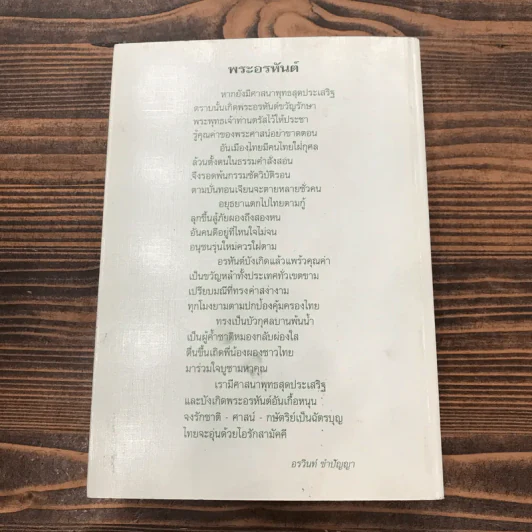 พระอรหันต์
หากยังมีศาสนาพุทธสุดประเสริฐ
ตราบนั้นเกิดพระอรหันต์ขวัญรักษา
พระพุทธเจ้าท่านตรัสไว้ให้ประชา
รู้คุณค่าของพระศาสน์อย่าขาดตอน
อันเมืองไทยมีคนไทยใฝ่กุศล
ล้วนตั้งตนในธรรมคำสั่งสอน
จึงรอดพ้นกรรมซัดวิบัติรอน
ตามบั่นทอนเจียนจะตายหลายชั่วคน
อยุธยาแตกไปไทยตามกู้
ลุกขึ้นสู้ภัยผองถึงสองหน
อันคนดีอยู่ที่ไหนใจไม่จน
อนุชนรุ่นใหม่ควรใฝ่ตาม
อรหันต์บังเกิดแล้วแพร้วคุณค่า
เป็นขวัญหล้าทั้งประเทศทั่วเขตขาม
เปรียบมณีที่ทรงค่าสง่างาม
ทุกโมงยามตามปกป้องคุ้มครองไทย
ทรงเป็นบัวกุศลบานพ้นน้ำ
เป็นผู้ค้ำชาติหมองกลับผ่องใส
ตื่นขึ้นเถิดพี่น้องผองชาวไทย
มาร่วมใจบูชามหาคุณ
เรามีศาสนาพุทธสุดประเสริฐ
และบังเกิดพระอรหันต์อันเกื้อหนุน
จงรักชาติ - ศาสน์ - กษัตริย์เป็นฉัตรบุญ
ไทยจะอุ่นด้วยไอรักสามัคคี
อรวินท์ ขำปัญญา